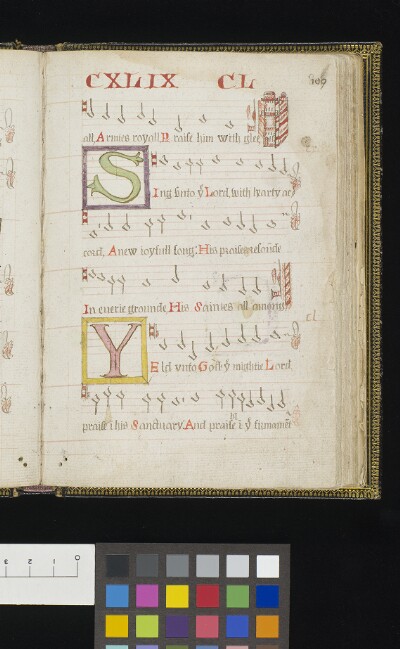 CXLIX CL 109
all Armies royall P raise him with glee
SIng vnto yͤ Lord, with harty ac
cord, A new ioyfull song: His praise resoūde
In euerie grounde His Saintes all amongst
cl
YEld vnto God yͤ mightie Lord,
praise ī his Sanctuary And praise ī yͤ firmamēt
0 1 2 3